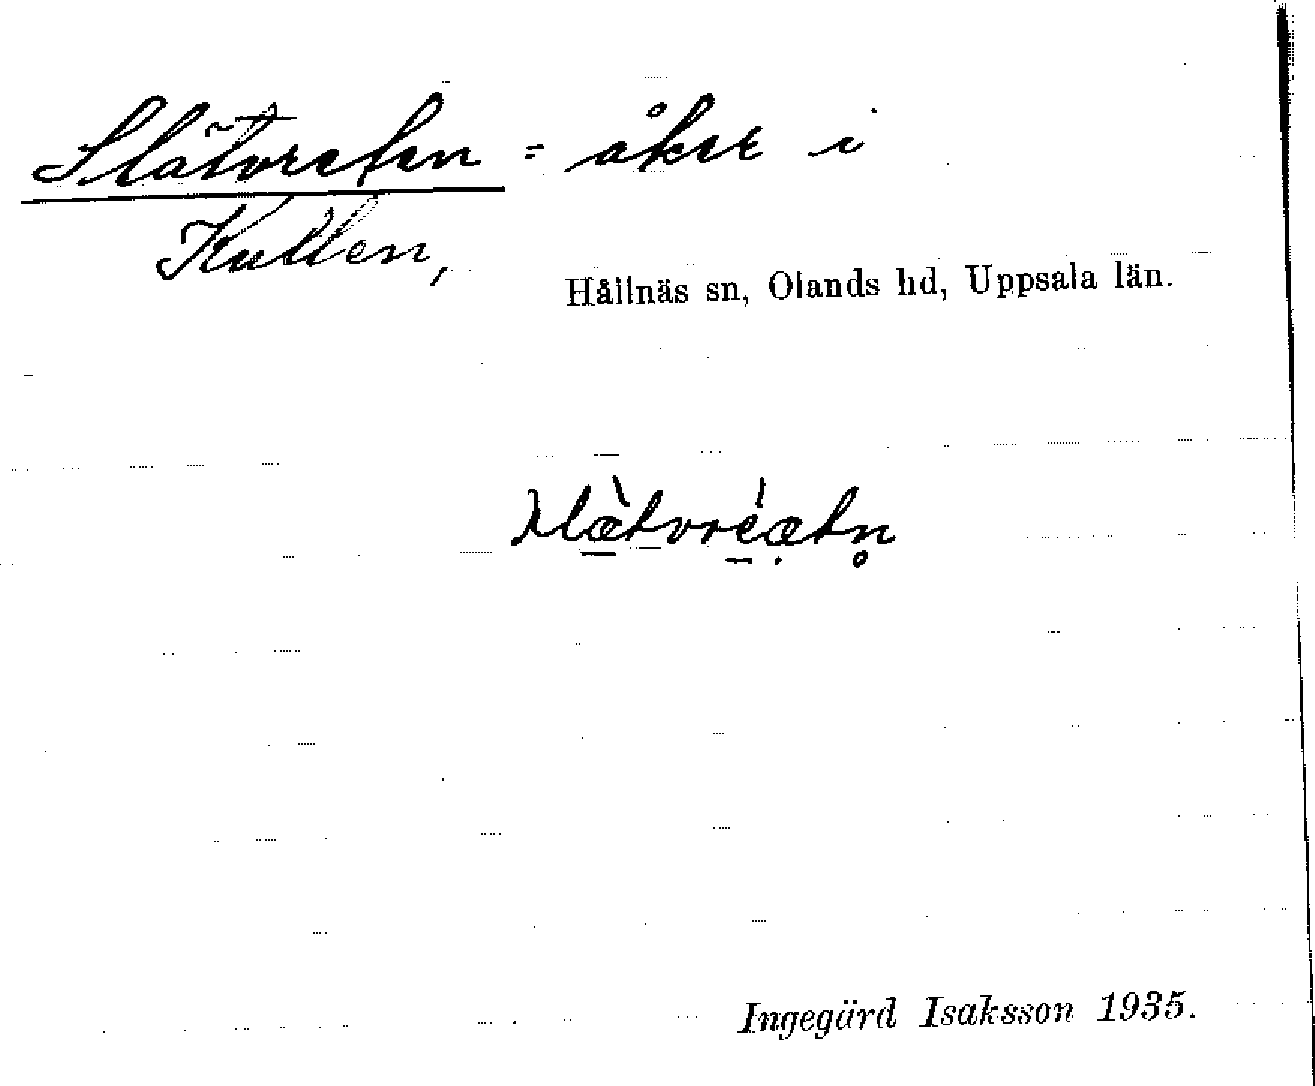 Slätvreten = åker i
Kullen,
Hållnäs sn, Olands hd, Uppsala län.
Ingegärd Isaksson 1935.